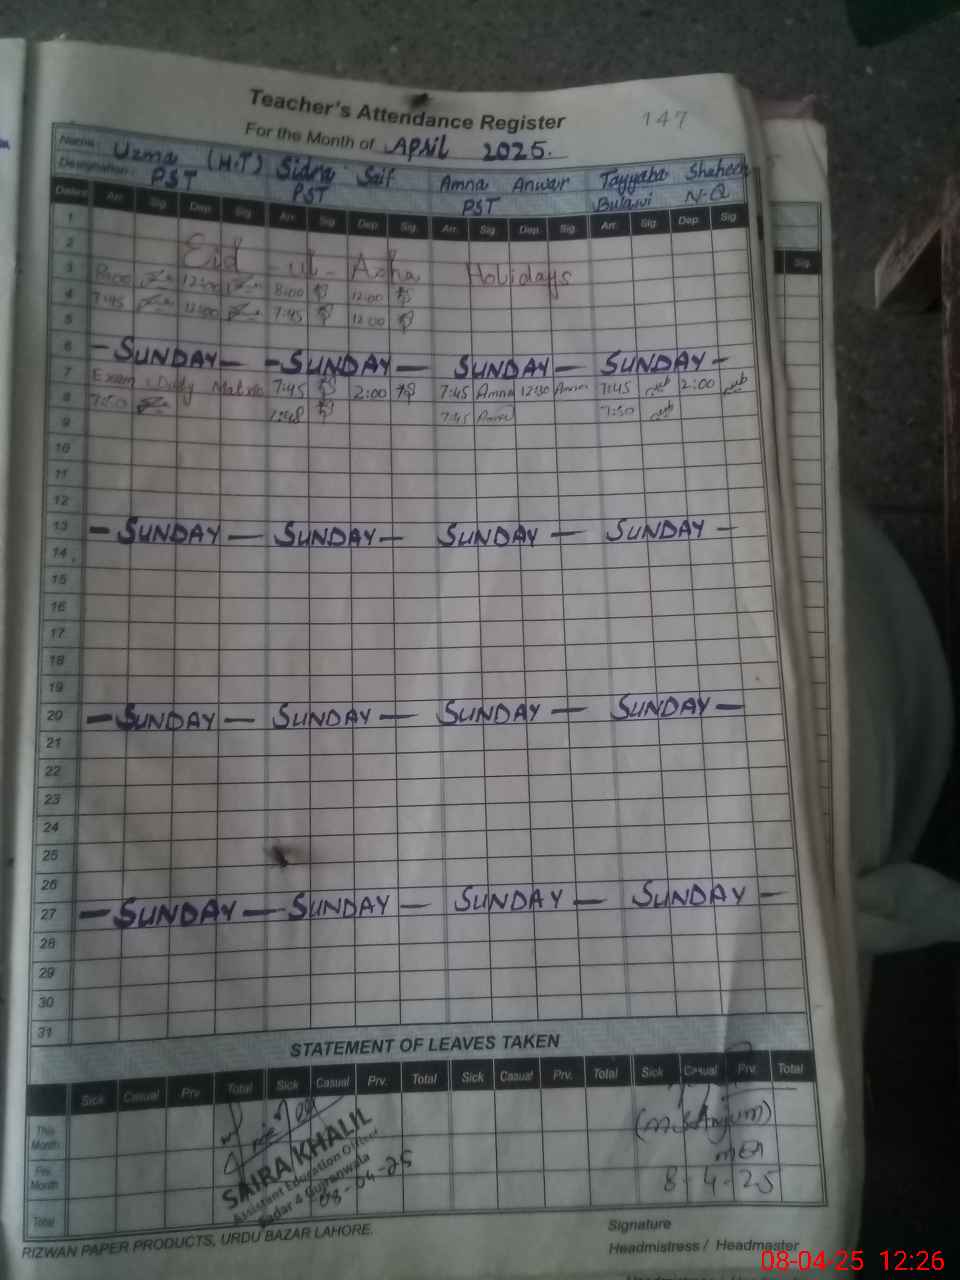 Teacher's Attendance Register
147
For the Month of APRIL 2025.
Name: Uzma (H.T) Sidra Saif Amna Anwar Tayyaba Shaheen
Designation: PST PST PST Bulawi N-Q
Dates Arr. Sig. Dep. Sig. Arr. Sig. Dep. Sig. Arr. Sig. Dep. Sig. Arr. Sig. Dep. Sig.
1
2 Eid -ul- Azha Holidays
3
4 8:00 12:00 8:00 12:00
5 7:45 12:00 7:45 12:00
6 - SUNDAY - - SUNDAY - SUNDAY - SUNDAY -
7 Exam Duty 7:45 2:00 7:45 Amna 12:30 Amna 7:45 2:00
8 7:50 7:48 7:45 Amna 7:50
9
10
11
12
13 - SUNDAY - SUNDAY - SUNDAY - SUNDAY -
14
15
16
17
18
19
20 - SUNDAY - SUNDAY - SUNDAY - SUNDAY -
21
22
23
24
25
26
27 - SUNDAY - SUNDAY - SUNDAY - SUNDAY -
28
29
30
31
STATEMENT OF LEAVES TAKEN
Sick Casual Prv. Total Sick Casual Prv. Total Sick Casual Prv. Total Sick Casual Prv. Total
This Month
Pre. Month
Total
SAIRA KHALIL
Assistant Education Officer
Gujranwala
08-04-25
(M.S.Anjum)
MEA
8-4-25
RIZWAN PAPER PRODUCTS, URDU BAZAR LAHORE.
Signature
Headmistress / Headmaster
08-04-25 12:26